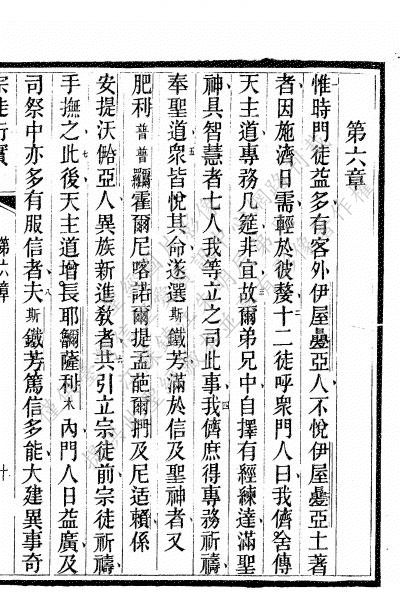 第六章
惟時門徒益多有客外伊屋曡亞人不悅伊屋曡亞土著
者因施濟日需輕於彼嫠十二徒呼衆門人曰我儕舍傳
天主道專務几筵非宜故爾弟兄中自擇有經練達滿聖
神具智慧者七人我等立之司此事我儕庶得專務祈禱
奉聖道衆皆悅其命遂選斯鐵芳滿於信及聖神者又
肥利普普囉霍爾尼喀諾爾提孟葩爾捫及尼适賴係
安提沃倄亞人異族新進敎者共引立宗徒前宗徒祈禱
手撫之此後天主道增長耶薩利米內門人日益廣及
司祭中亦多有服信者夫斯鐵芳篤信多能大建異事奇
宗徒行實
第六章
十